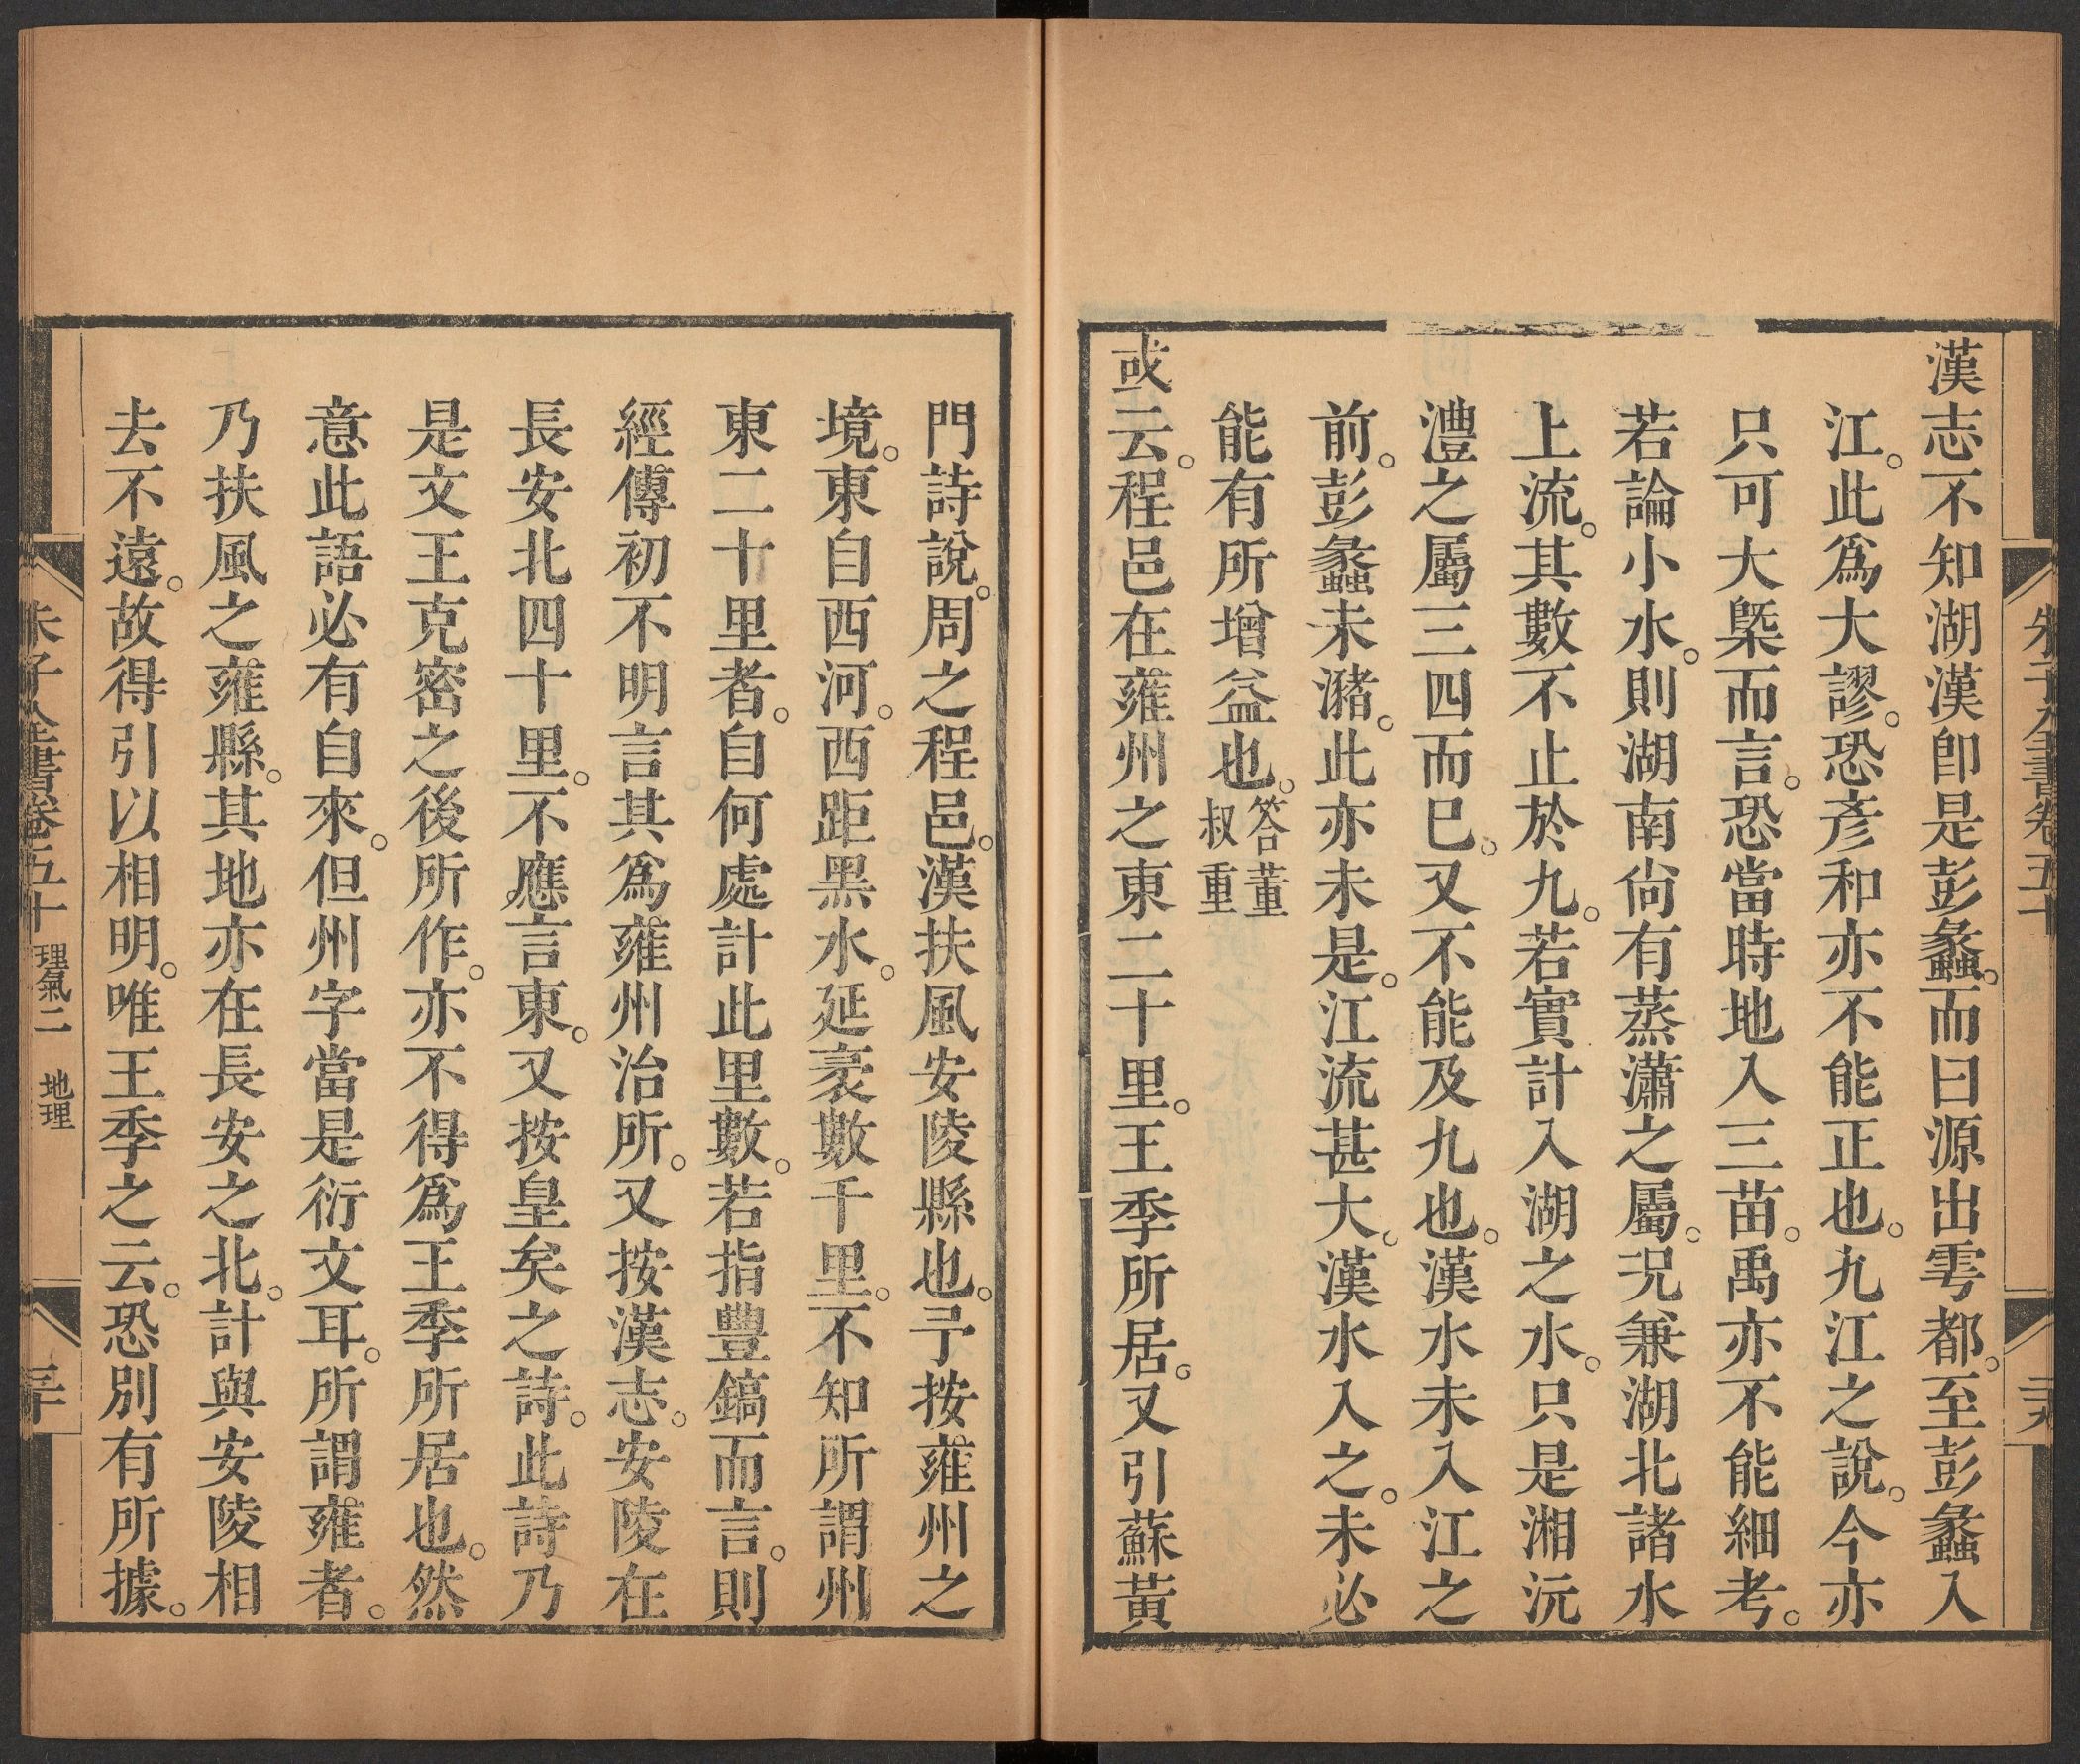 漢志不知湖漢卽是彭蠡。而曰源出雩都。至彭蠡入
江。此爲大謬。恐彥和亦不能正也。九江之說。今亦
只可大槩而言。恐當時地入三苗。禹亦不能細考。
若論小水。則湖南尙有蒸瀟之屬。況兼湖北諸水
上流。其數不止於九。若實計入湖之水。只是湘沅
澧之屬三四而巳。又不能及九也。漢水未入江之
前。彭蠡未瀦。此亦未是。江流甚大。漢水入之。未必
能有所增益也。答董叔重
或云。程邑在雍州之東二十里。王季所居。又引蘇黃
門詩說。周之程邑。漢扶風安陵縣也。予按雍州之
境。東自西河。西距黑水。延袤數千里。不知所謂州
東二十里者。自何處計此里數。若指豐鎬而言。則
經傳初不明言其爲雍州治所。又按漢志。安陵在
長安北四十里。不應言東。又按皇矣之詩。此詩乃
是文王克密之後所作。亦不得爲王季所居也。然
意此語必有自來。但州字當是衍文耳。所謂雍者。
乃扶風之雍縣。其地亦在長安之北。計與安陵相
去不遠。故得引以相明。唯王季之云。恐別有所據。
朱子全書卷五十 理氣二 地理